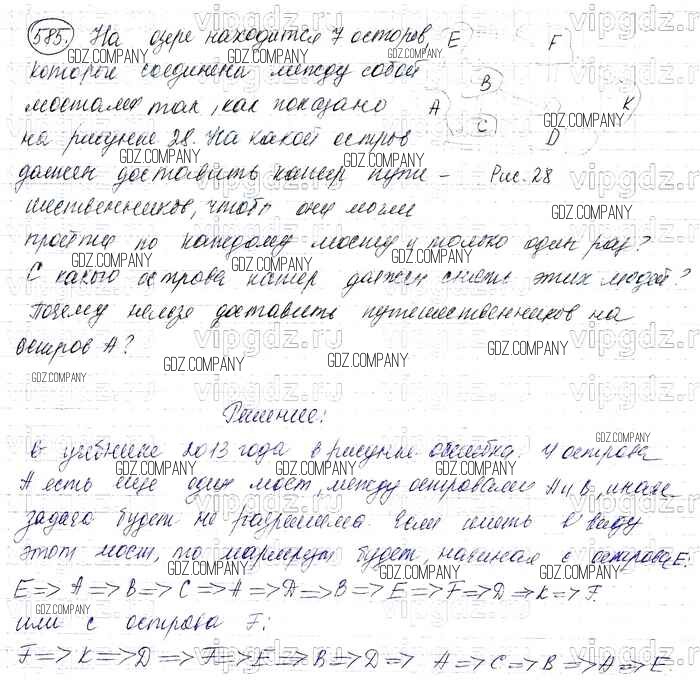 585. На озере находится 7 островов, E F
которые соединены между собой B
мостами так, как показано A K
на рисунке 28. На какой остров C D
должен доставить катер путе- Рис. 28
шественников, чтобы они могли
пройти по каждому мосту и только один раз?
С какого острова катер должен снять этих людей?
Почему нельзя доставить путешественников на
остров А?
Решение:
В учебнике 2013 года в рисунке ошибка. У острова
А есть еще один мост, между островами А и В, иначе
задача будет не разрешима. Если иметь в виду
этот мост, то маршрут будет, начиная с острова E:
E=>A=>B=>C=>A=>D=>B=>E=>F=>D=>K=>F.
или с острова F:
F=>K=>D=>F=>E=>B=>D=>A=>C=>B=>A=>E
GDZ.COMPANY
vipgdz.ru